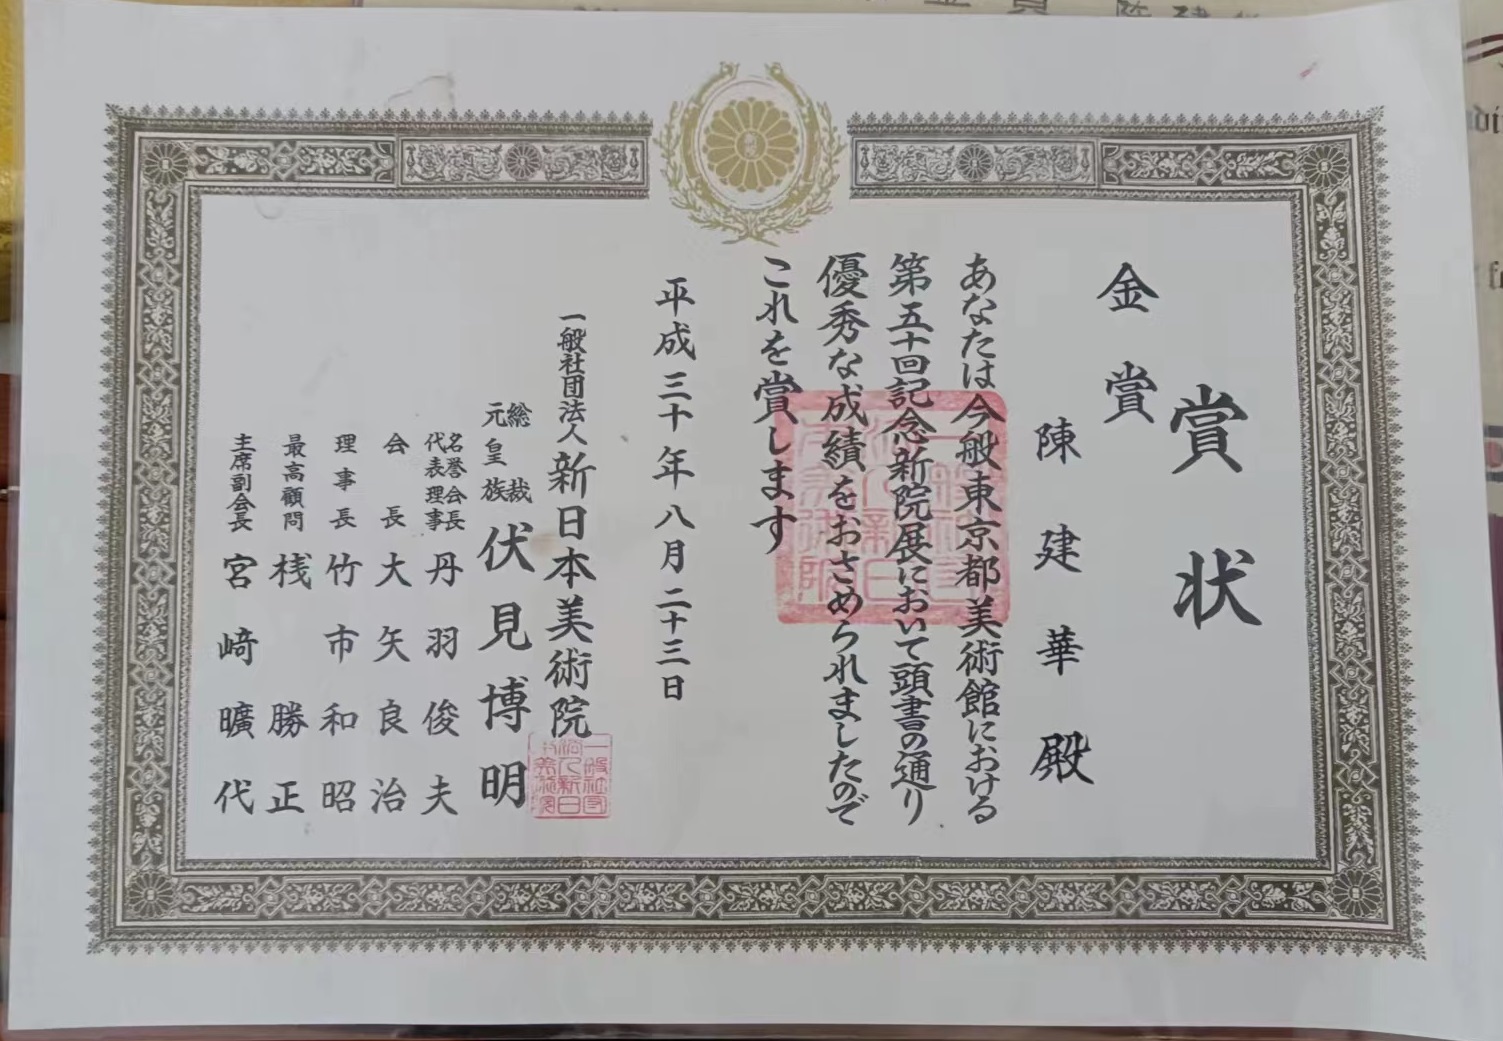 賞状
金賞
陳建華殿
あなたは今般東京都美術館における
第五十回記念新院展において頭書の通り
優秀な成績をおさめられましたので
これを賞します
平成三十年八月二十三日
一般社団法人新日本美術院
総裁
元皇族
伏見博明
名誉会長
代表理事
丹羽俊夫
会長 大矢良治
理事長 竹市和昭
最高顧問 桟勝正
主席副会長 宮﨑曠代